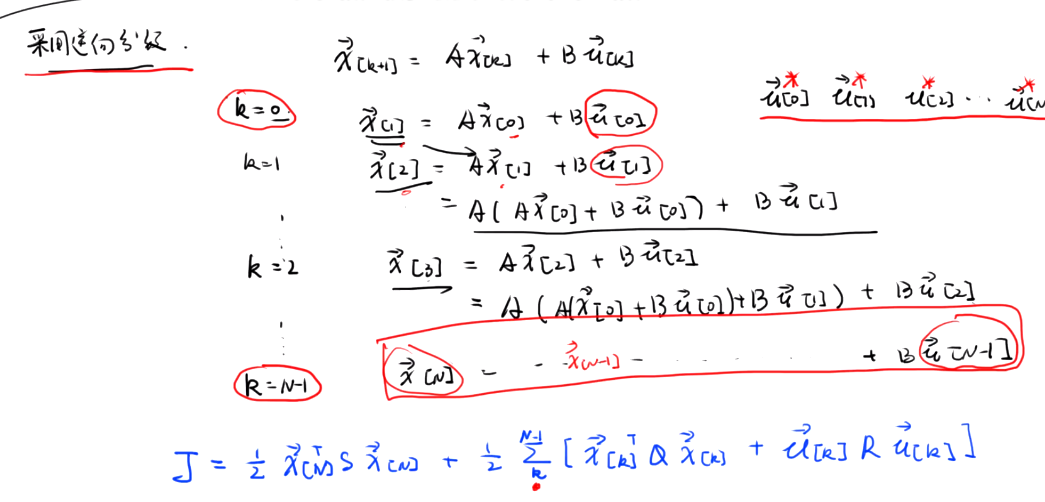 采用逆向分级.
x⃗[k+1] = Ax⃗[k] + Bu⃗[k]
u⃗[0]* u⃗[1]* u⃗[2]* ... u⃗[N
k=0 x⃗[1] = Ax⃗[0] + Bu⃗[0]
k=1 x⃗[2] = Ax⃗[1] + Bu⃗[1]
= A(Ax⃗[0] + Bu⃗[0]) + Bu⃗[1]
k=2 x⃗[3] = Ax⃗[2] + Bu⃗[2]
= A(A(x⃗[0] + Bu⃗[0]) + Bu⃗[1]) + Bu⃗[2]
k=N-1 x⃗[N] = - - x⃗[N-1] - ...... + Bu⃗[N-1]
J = 1/2 x⃗[N]ᵀ S x⃗[N] + 1/2 Σ_k^{N-1} [x⃗[k]ᵀ Q x⃗[k] + u⃗[k] R u⃗[k]]